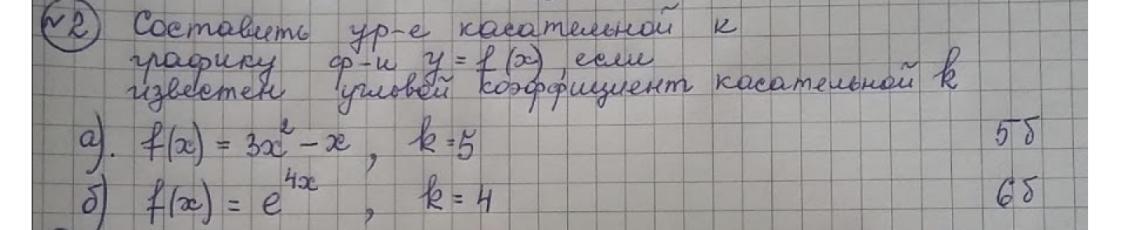 №2 Составить ур-е касательной к
графику ф-и y = f(x), если
известен угловой коэффициент касательной k
а). f(x) = 3x² - x, k=5 5б
б) f(x) = e^{4x}, k = 4 6б